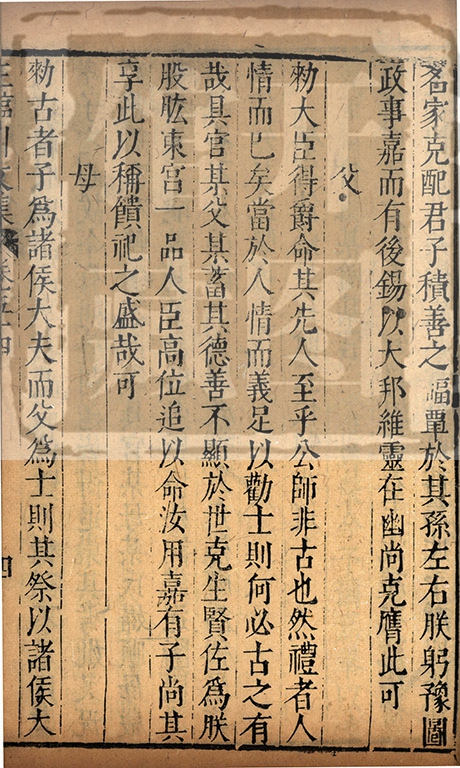 名家克配君子積善之福覃於其孫左右朕躬豫圖
政事嘉而有後錫以大邦維靈在幽尚克膺此可
父
勑大臣得爵命其先人至乎公師非古也然禮者人
情而已矣當於人情而義足以勸士則何必古之有
哉具官某父某蓄其德善不顯於世克生賢佐為朕
股肱東宮一品人臣高位追以命汝用嘉有子尚其
享此以稱饋祀之盛哉可
母
勑古者子為諸侯大夫而父為士則其祭以諸侯大
王臨川文集 卷五十四 四